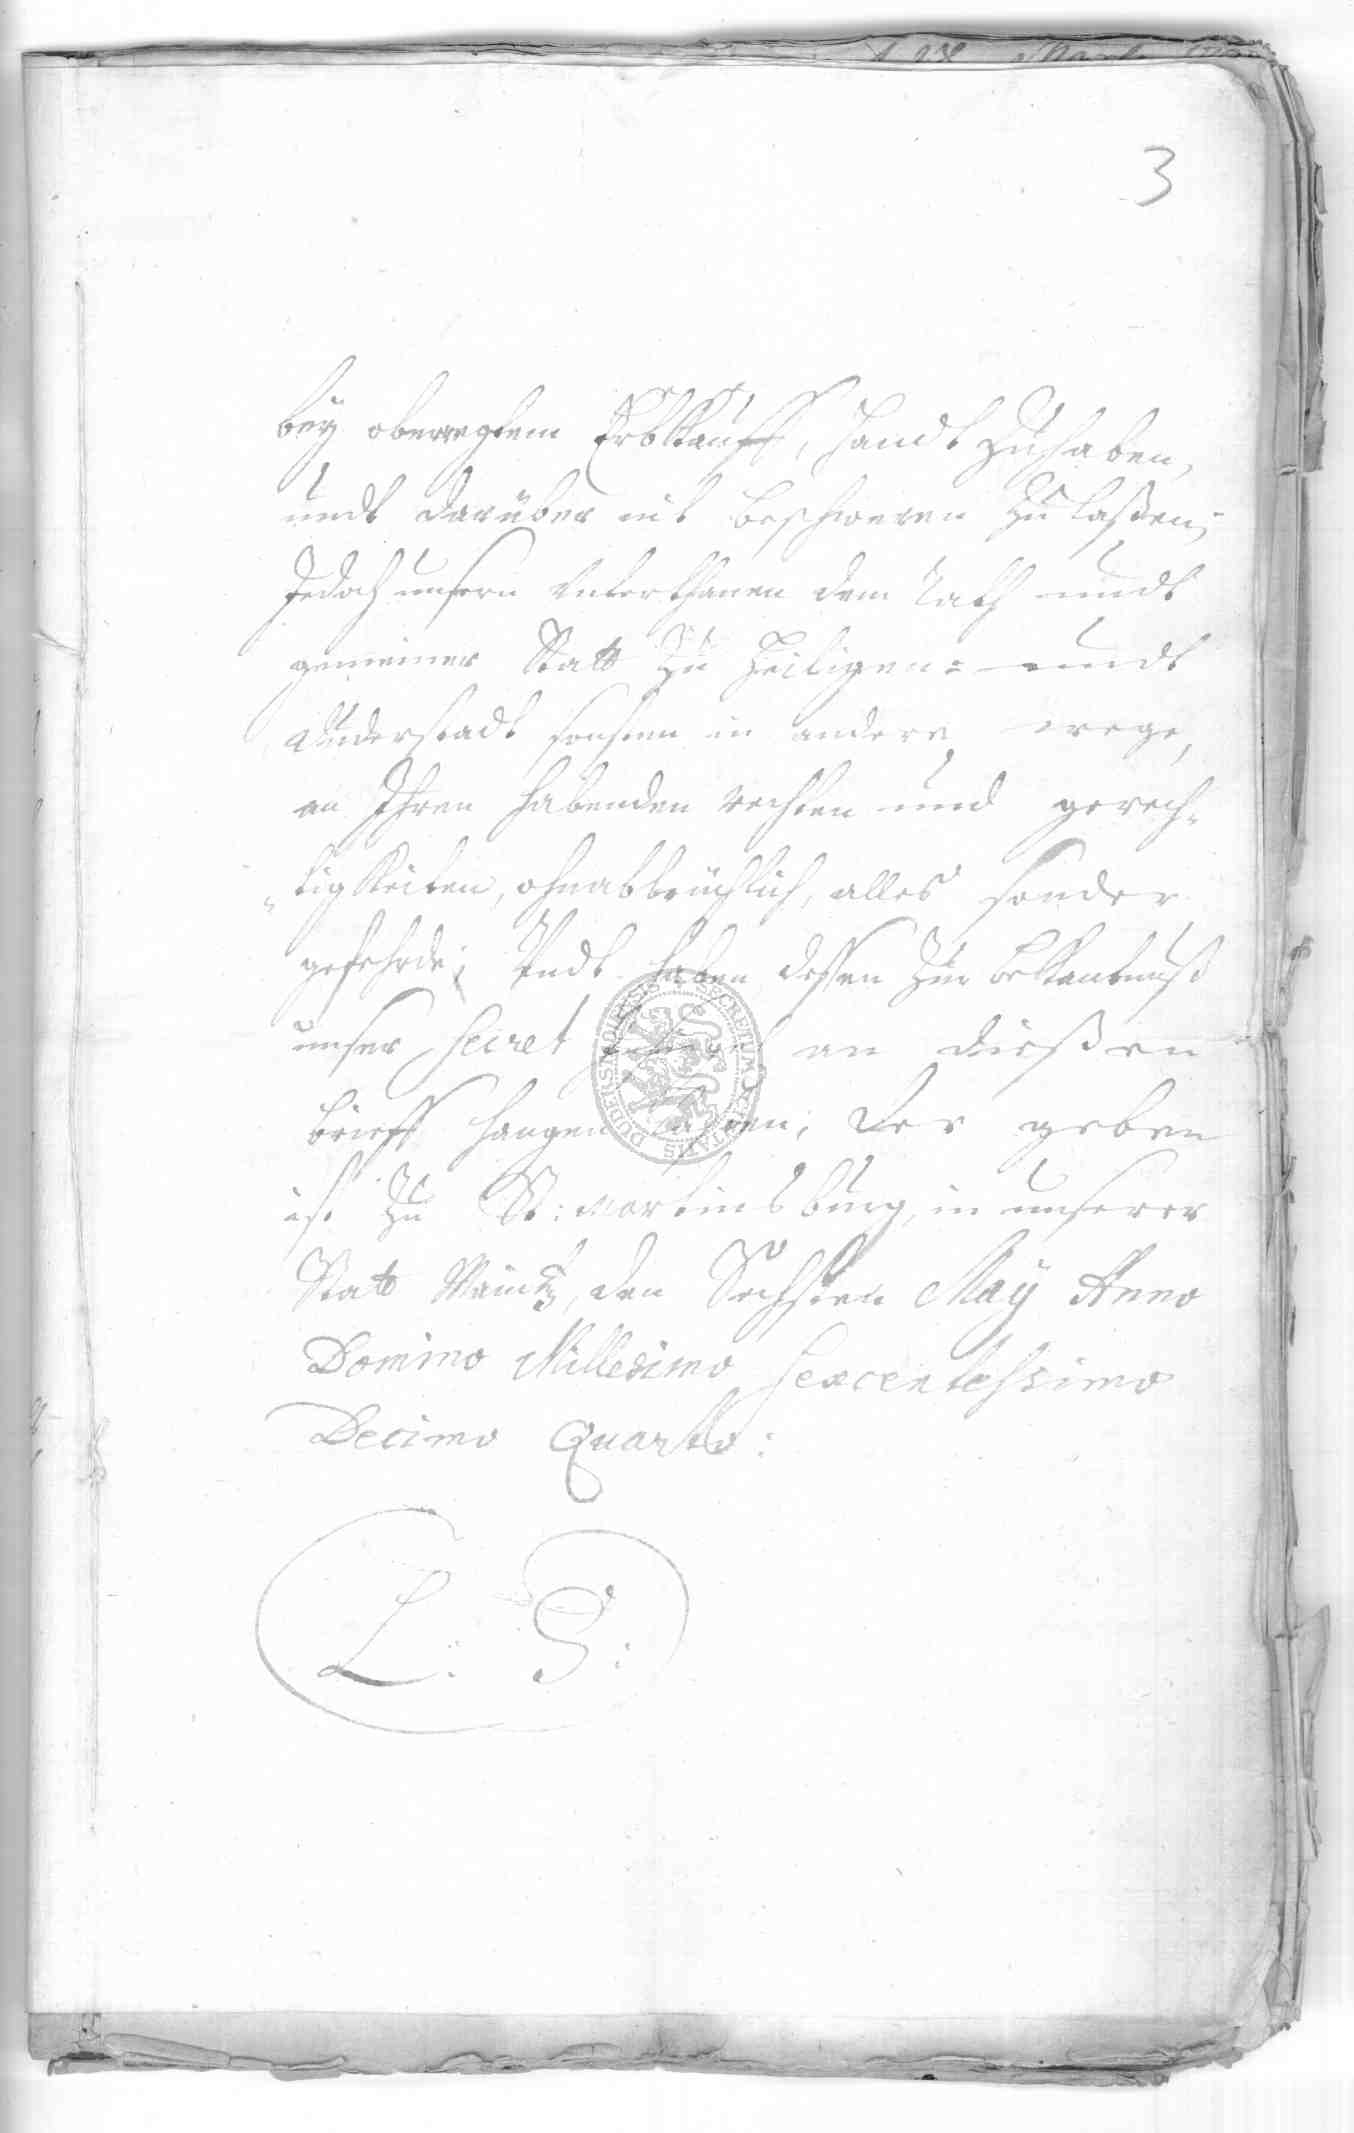 3
beÿ oberregtem Erbkauff, handt zuhaben,
undt darüber nit beschweren zu laßen,
Jedoch unsern Unterthanen dem Rath undt
gemeiner Statt zu Heiligen= undt
Duderstadt sonsten in andere wege,
an Ihren habenden rechten und gerech=
=tigkeiten, ohnabbrüchlich, alles sonder
gefehrde; Undt haben dessen zur bekantnuß
unser Secret an dießen
brieff hangen laßen, der geben
ist zu St: Martinsburg, in unserer
Statt Maintz, den Sechsten Maÿ Anno
Domino Millesimo Sexcentessimo
Decimo Quarto:
L: S: